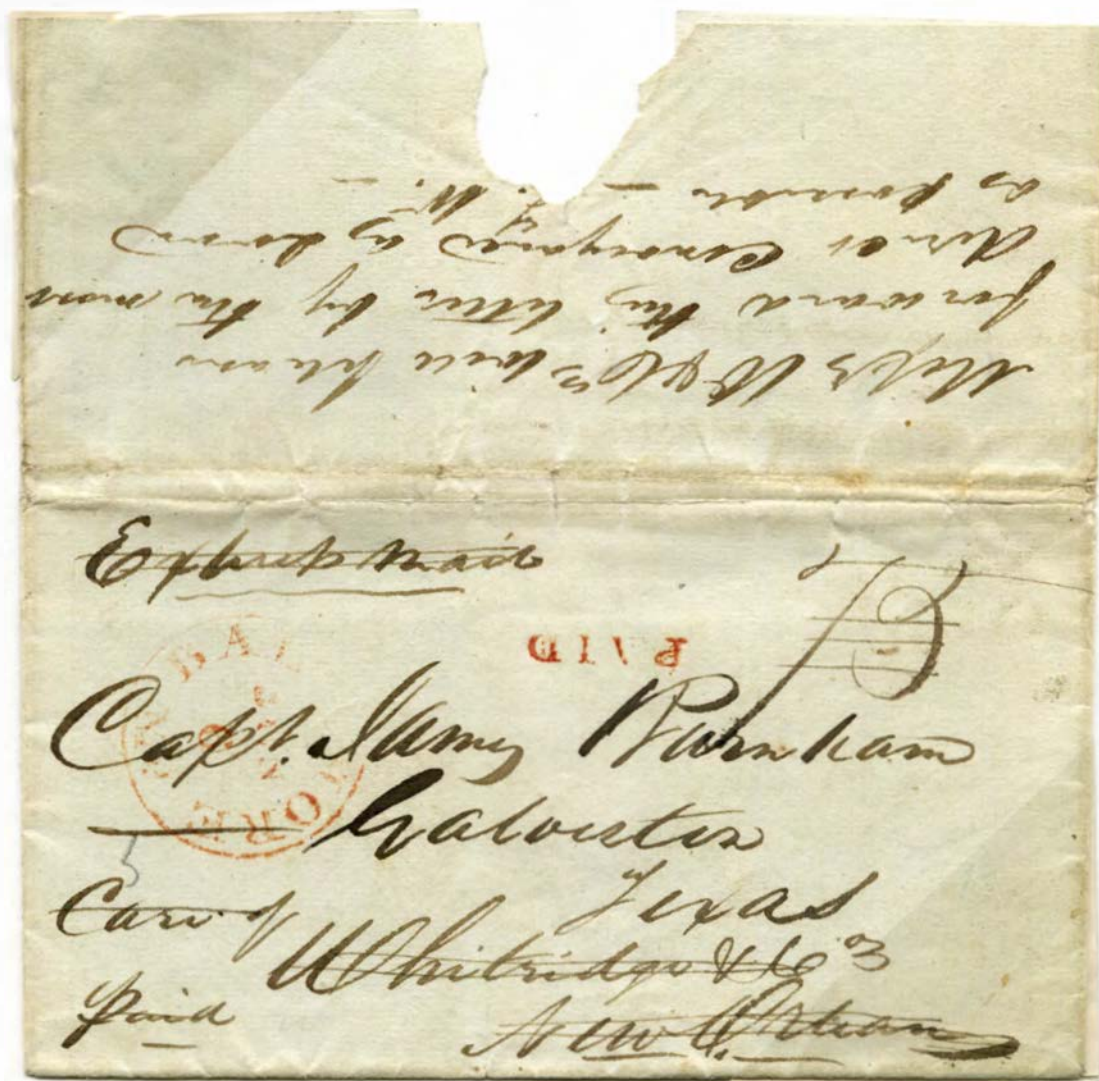 Mess W & Co will please
forward this letter by the most
direct conveyance as soon
as possible — J. W. —
Express mail
PAID
BAL ORE
Capt. James Burnham
Galveston
Texas
Care of
Whitridge & Co
Paid
New Orleans